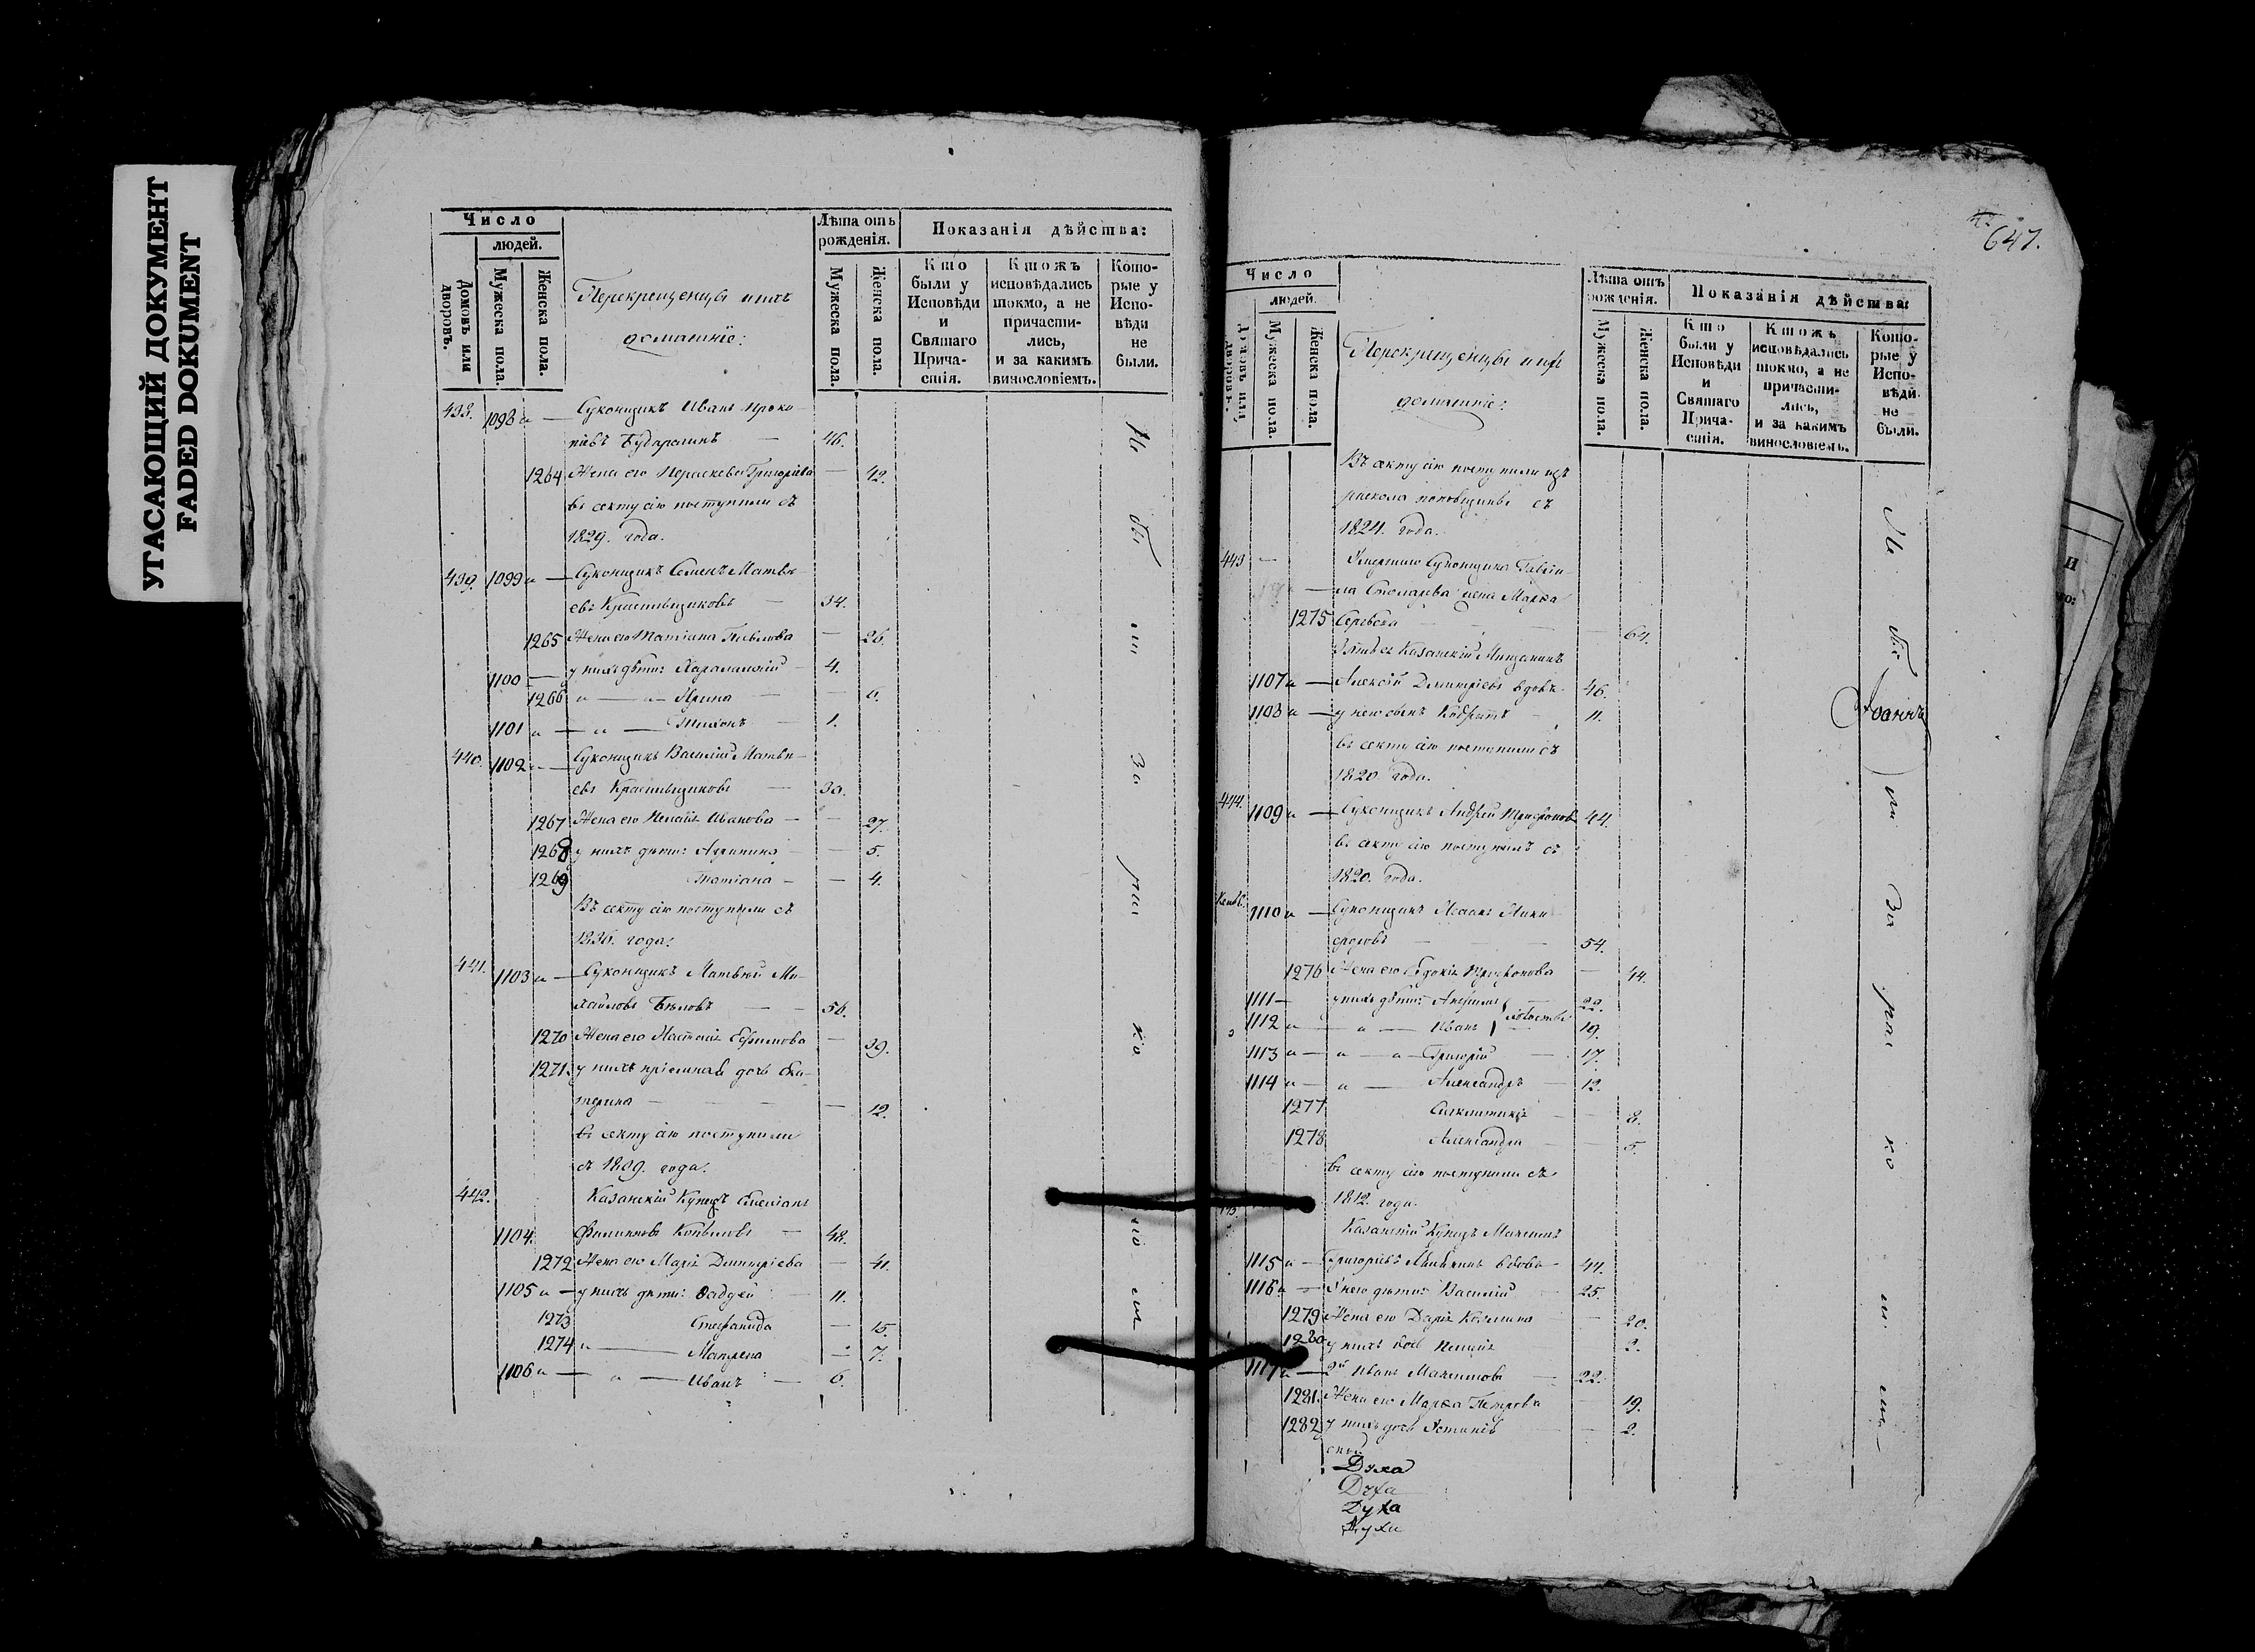 УГАСАЮЩИЙ ДОКУМЕНТ
FADED DOKUMENT
Число
людей.
Домовъ или дворовъ.
Мужеска пола.
Женска пола.
Перекрещенцы ихъ
домашніе:
Лѣта отъ рожденія.
Мужеска пола.
Женска пола.
Показанія дѣйства:
Кто были у Исповѣди и Святаго Причастія.
Ктожъ исповѣдались токмо, а не причастились, и за какимъ винословіемъ.
Которые у Исповѣди не были.
438. 1098 Суконщикъ Иванъ Проко-
пьевъ 46.
1264 Жена его Параскева Григорьева — 42.
въ секту сію поступили съ
1829. года.
439. 1099 Суконщикъ Семенъ Матвѣ-
евъ Красильщиковъ — 34.
1265 Жена его Татіана Павлова — 26.
1100 — у нихъ дѣти: Харлампій — 4.
1266 Ирина
1101 Тихонъ — 1.
440. 1102 Суконщикъ Василій Матвѣ-
евъ Красильщиковъ — 30.
1267 Жена его Пелагія Иванова — 27.
1268 у нихъ дѣти: Агрипина — 5.
1269 Татіана — 4.
Въ секту сію поступили съ
1830. года.
441. 1103 Суконщикъ Матвѣй Ми-
хайловъ Бѣловъ — 56.
1270 Жена его Настасія Ефимова — 39.
1271. у нихъ пріемная дочь Ека-
терина — 12.
въ секту сію поступили
съ 1809. года.
442. Казанскій Купецъ Емеліанъ
1104. Филиповъ 48.
1272 Жена его Марія Дмитріева — 41.
1105 — у нихъ дѣти: Фадѣй — 11.
1273 Стефанида — 15.
1274 Матрена — 7.
1106 Иванъ — 6.
Не бы ли за рас ко ло м
647.
Число
людей.
Домовъ или дворовъ.
Мужеска пола.
Женска пола.
Перекрещенцы ихъ
домашніе:
Лѣта отъ рожденія.
Мужеска пола.
Женска пола.
Показанія дѣйства:
Кто были у Исповѣди и Святаго Причастія.
Ктожъ исповѣдались токмо, а не причастились, и за какимъ винословіемъ.
Которые у Исповѣди не были.
Въ секту сію поступили изъ
раскола поповщины съ
1824. года.
443 — Умершаго Суконщика Гаврі-
ла Столярова жена Марѳа
1275 64.
Зять ея Казанскій Мѣщанинъ
1107 Алексѣй Дмитріевъ вдовъ 46.
1108 у него сынъ 11.
въ секту сію поступили съ
1820. года.
444. 1109 Суконщикъ Андрей Трифоновъ 44.
въ секту сію поступилъ съ
1820. года.
1110 Суконщикъ Ники-
форовъ 54.
1276 Жена его Евдокія Трифонова — 44.
1111 — у нихъ дѣти: 22.
1112 Иванъ 19.
1113 Григорій — 17.
1114 Александръ — 12.
1277 8.
1278 Александра — 5.
въ секту сію поступили съ
1812. года.
Казанскій Купецъ Максимъ
1115 Григорьевъ вдовъ 44.
1116 У него дѣти: Василій — 25.
1279 Жена его Дарія Козмина — 20.
1280 у нихъ дочь Пелагія 2.
1117 2й Иванъ Максимовъ 22.
1281. Жена его Марѳа Петрова 19.
1282 у нихъ дочь Устинія 2.
Духа
Духа
Духа
Духа
Іоаннъ